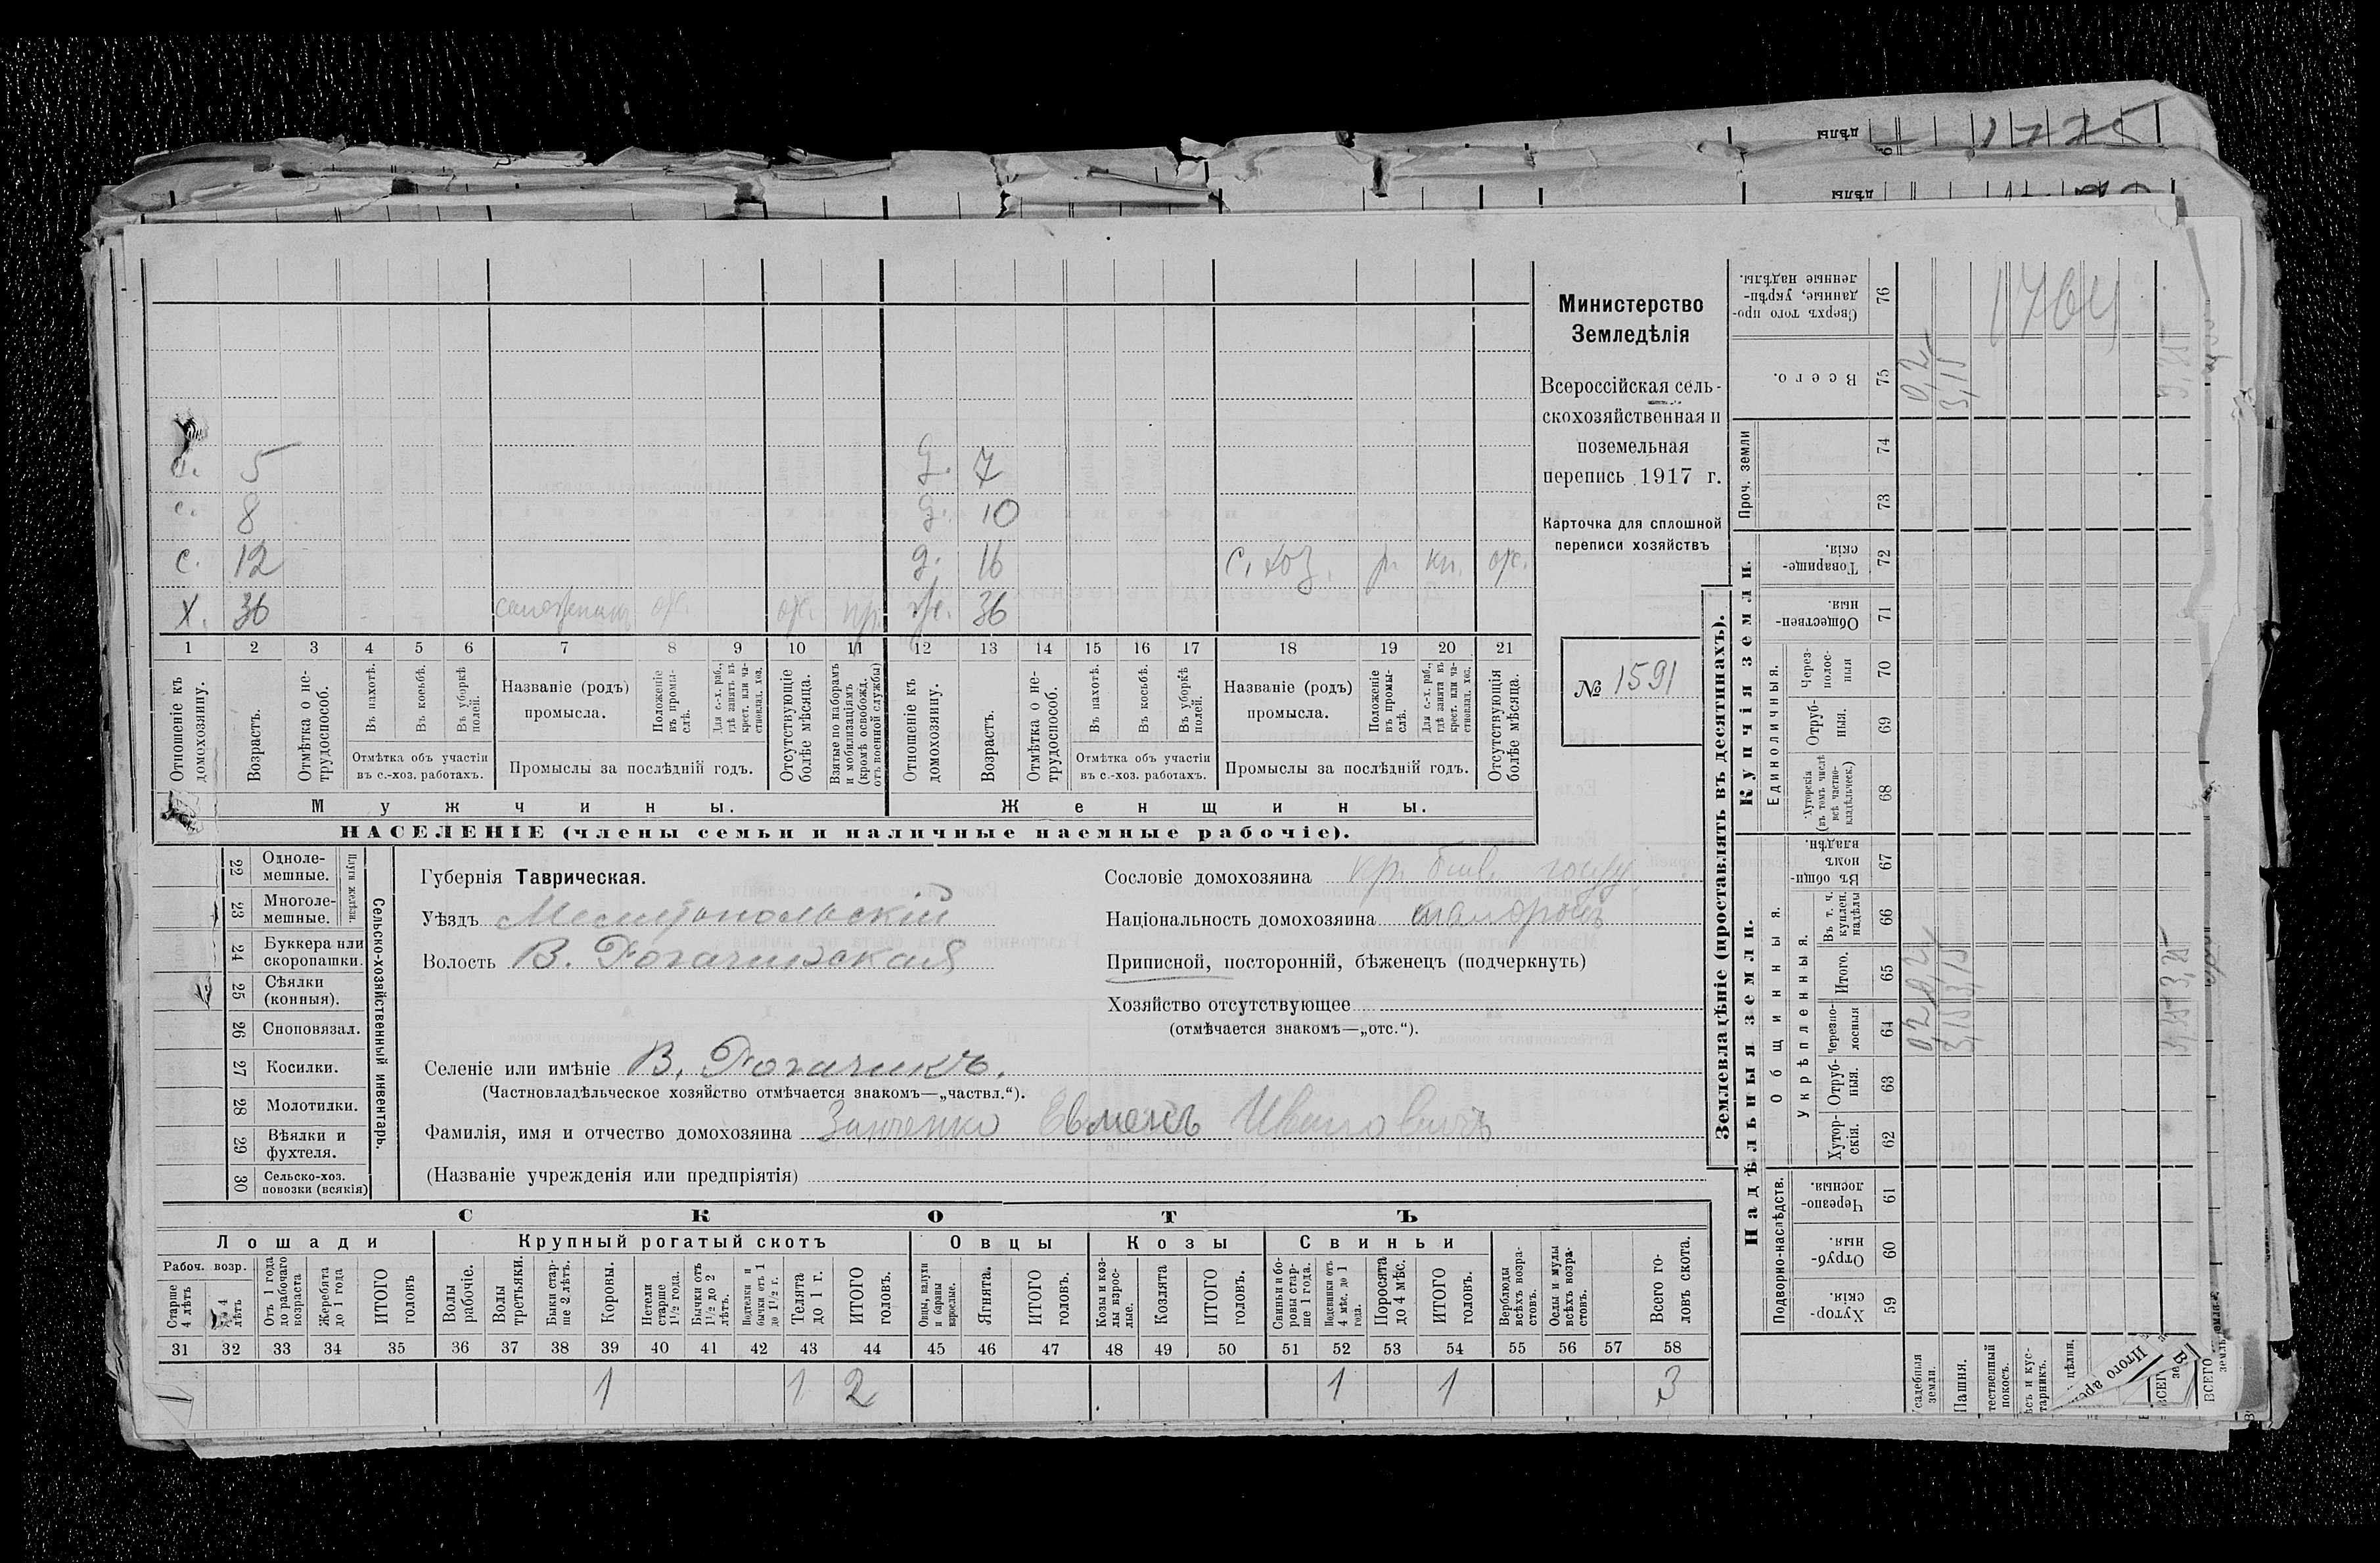 Министерство
Земледѣлія
Всероссійская сель-
скохозяйственная и
поземельная
перепись 1917 г.
Карточка для сплошной
переписи хозяйствъ
№ 1591
с. 5
с. 8
с. 12
х. 36
д. 7
д. 10
д. 16 с. хоз. р. кп. от.
ж. 36
1 2 3 4 5 6 7 8 9 10 11 12 13 14 15 16 17 18 19 20 21
Отношеніе къ домохозяину.
Возрастъ.
Отмѣтка о не-трудоспособ.
Въ пахотѣ.
Въ косьбѣ.
Въ уборкѣ полей.
Отмѣтка объ участіи
въ с.-хоз. работахъ.
Названіе (родъ)
промысла.
Положеніе въ промы-слѣ.
Для с.-х. раб., гдѣ занятъ въ крест. или ча-стновлад. хоз.
Промыслы за послѣдній годъ.
Отсутствующіе болѣе мѣсяца.
Взятые по наборамъ и мобилизаціямъ (кромѣ освобожд. отъ военной службы)
Отношеніе къ домохозяину.
Возрастъ.
Отмѣтка о не-трудоспособ.
Въ пахотѣ.
Въ косьбѣ.
Въ уборкѣ полей.
Отмѣтка объ участіи
въ с.-хоз. работахъ.
Названіе (родъ)
промысла.
Положеніе въ промы-слѣ.
Для с.-х. раб., гдѣ занята въ крест. или ча-стновлад. хоз.
Промыслы за послѣдній годъ.
Отсутствующія болѣе мѣсяца.
Мужчины.
Женщины.
НАСЕЛЕНІЕ (члены семьи и наличные наемные рабочіе).
Сельско-хозяйственный инвентарь.
Плуги желѣзн.
22 Одноле-мешные.
23 Многоле-мешные.
24 Буккера или скоропашки.
25 Сѣялки (конныя).
26 Сноповязал.
27 Косилки.
28 Молотилки.
29 Вѣялки и фухтеля.
30 Сельско-хоз. повозки (всякія)
Губернія Таврическая.
Уѣздъ Мелитопольскій
Волость В. Рогачикская
Сословіе домохозяина кр. быв. госуд.
Національность домохозяина малороссъ
Приписной, посторонній, бѣженецъ (подчеркнуть)
Хозяйство отсутствующее
(отмѣчается знакомъ—„отс.“).
Селеніе или имѣніе В. Рогачикъ.
(Частновладѣльческое хозяйство отмѣчается знакомъ—„частвл.“).
Фамилія, имя и отчество домохозяина Евменъ Ивановичъ
(Названіе учрежденія или предпріятія)
СКОТЪ
Лошади
Крупный рогатый скотъ
Овцы
Козы
Свиньи
Рабоч. возр.
Старше 4 лѣтъ
До 4 лѣтъ
Отъ 1 года до рабочаго возраста
Жеребята до 1 года
ИТОГО головъ
Волы рабочіе.
Волы третьяки.
Быки стар-ше 2 лѣтъ.
Коровы.
Нетели старше 1½ года.
Бычки отъ 1½ до 2 лѣтъ.
Подтелки и бычки отъ 1 до 1½ г.
Телята до 1 г.
ИТОГО головъ.
Овцы, валухи и бараны взрослые.
Ягнята.
ИТОГО головъ.
Козы и коз-лы взрос-лые.
Козлята
ИТОГО головъ.
Свиньи и бо-ровы стар-ше 1 года.
Подсвинки отъ 4 мѣс. до 1 года.
Поросята до 4 мѣс.
ИТОГО головъ.
Верблюды всѣхъ возра-стовъ.
Ослы и мулы всѣхъ возра-стовъ.
Всего го-ловъ скота.
31 32 33 34 35 36 37 38 39 40 41 42 43 44 45 46 47 48 49 50 51 52 53 54 55 56 57 58
1 1 2 1 1 3
Землевладѣніе (проставлять въ десятинахъ).
Купчія земли.
Надѣльныя земли.
Сверхъ того про-данные, укрѣп-ленные надѣлы. 76
Всего. 75
Проч. земли 74 73
Товарище-скія. 72
Обществен-ныя. 71
Единоличныя.
Через-полос-ныя 70
Отруб-ныя. 69
Хуторскія (въ томъ числѣ всѣ частно-владѣльческ.) 68
Общинныя.
Въ общин-номъ владѣн. 67
Укрѣпленныя.
Въ т. ч. куплен. надѣлы 66
Итого. 65
Черезпо-лосныя 64
Отруб-ныя. 63
Хутор-скія. 62
Подворно-наслѣдств.
Черезпо-лосныя. 61
Отруб-ныя. 60
Хутор-скія. 59
1764
0,2
3,15
0,2 0,2
3,15 3,15
3,35 3,35
Пашня.
Итого
ВСЕГО